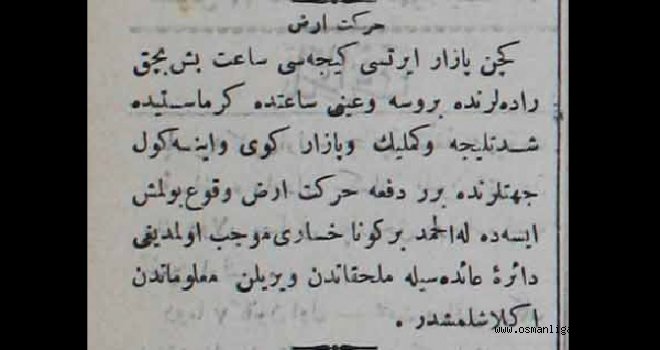 حركت ارض
كچن پازار ايرتسى كيجه‌سى ساعت بش بچق
راده‌لرنده بروسه وعينى ساعتده كرماستيده
شدتليجه وكمليك وپازار كوى واينه كول
جهتلرنده برر دفعه حركت ارض وقوع بولمش
ايسه‌ده له‌الحمد بركونا خسارى موجب اولمديغى
دائرۀ عائده‌سيله ملحقاتدن ويريلن معلوماتدن
اكلاشلمشدر .
www.osmanliga